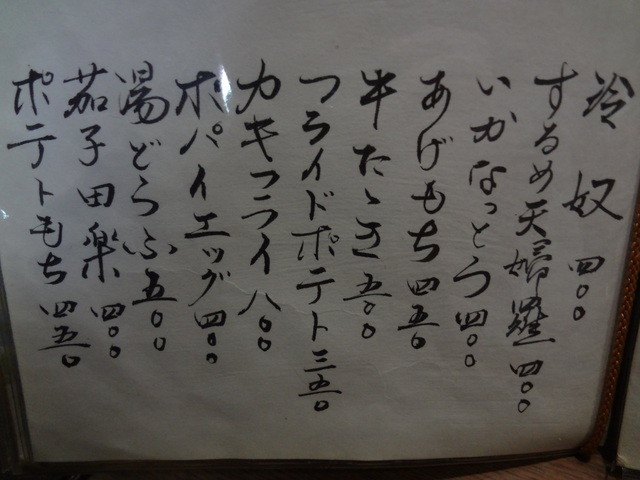 冷奴 四〇〇
するめ天婦羅 四〇〇
いかなっとう 四〇〇
あげもち 四五〇
牛たゝき 五〇〇
フライドポテト 三五〇
カキフライ 八〇〇
ポパイエッグ 四〇〇
湯どうふ 五〇〇
茄子田楽 四〇〇
ポテトもち 四五〇